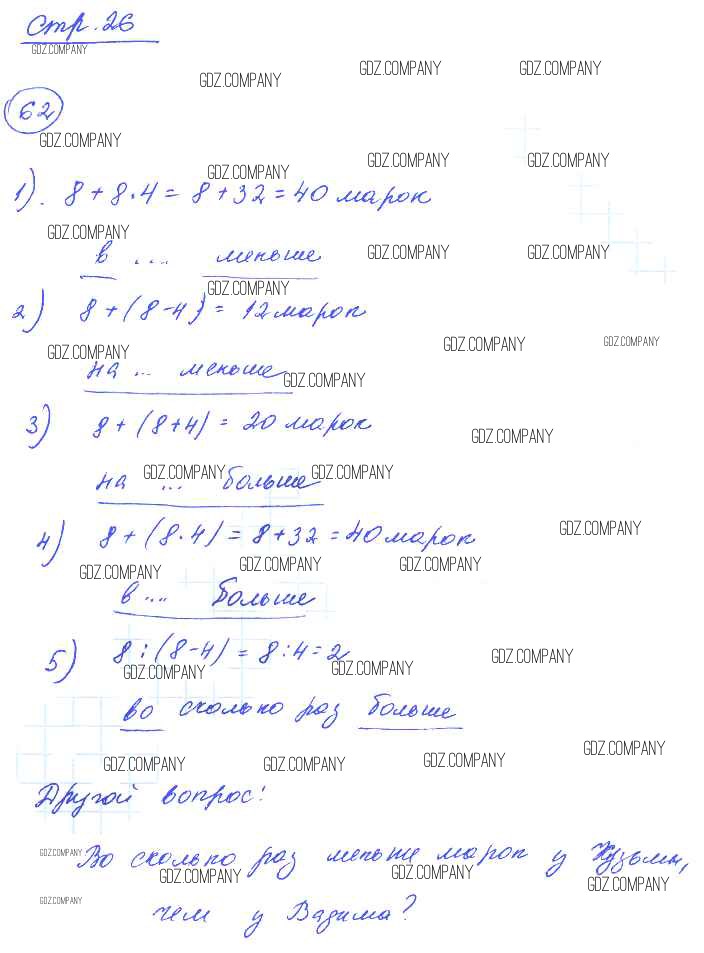 Стр. 26
GDZ.COMPANY
GDZ.COMPANY GDZ.COMPANY GDZ.COMPANY
62
GDZ.COMPANY
GDZ.COMPANY GDZ.COMPANY GDZ.COMPANY
1). 8 + 8·4 = 8 + 32 = 40 марок
GDZ.COMPANY
в .... меньше GDZ.COMPANY GDZ.COMPANY
GDZ.COMPANY
2) 8 + (8-4) = 12 марок
GDZ.COMPANY GDZ.COMPANY GDZ.COMPANY
на ... меньше GDZ.COMPANY
3) 8 + (8+4) = 20 марок
GDZ.COMPANY
GDZ.COMPANY GDZ.COMPANY
на ... больше
4) 8 + (8·4) = 8 + 32 = 40 марок GDZ.COMPANY
GDZ.COMPANY GDZ.COMPANY GDZ.COMPANY
в ... больше
5) 8 : (8-4) = 8 : 4 = 2 GDZ.COMPANY
GDZ.COMPANY GDZ.COMPANY
во сколько раз больше
GDZ.COMPANY GDZ.COMPANY GDZ.COMPANY GDZ.COMPANY
Другой вопрос:
GDZ.COMPANY
Во сколько раз меньше марок у Кузьмы,
GDZ.COMPANY GDZ.COMPANY GDZ.COMPANY
GDZ.COMPANY
чем у Вадима?